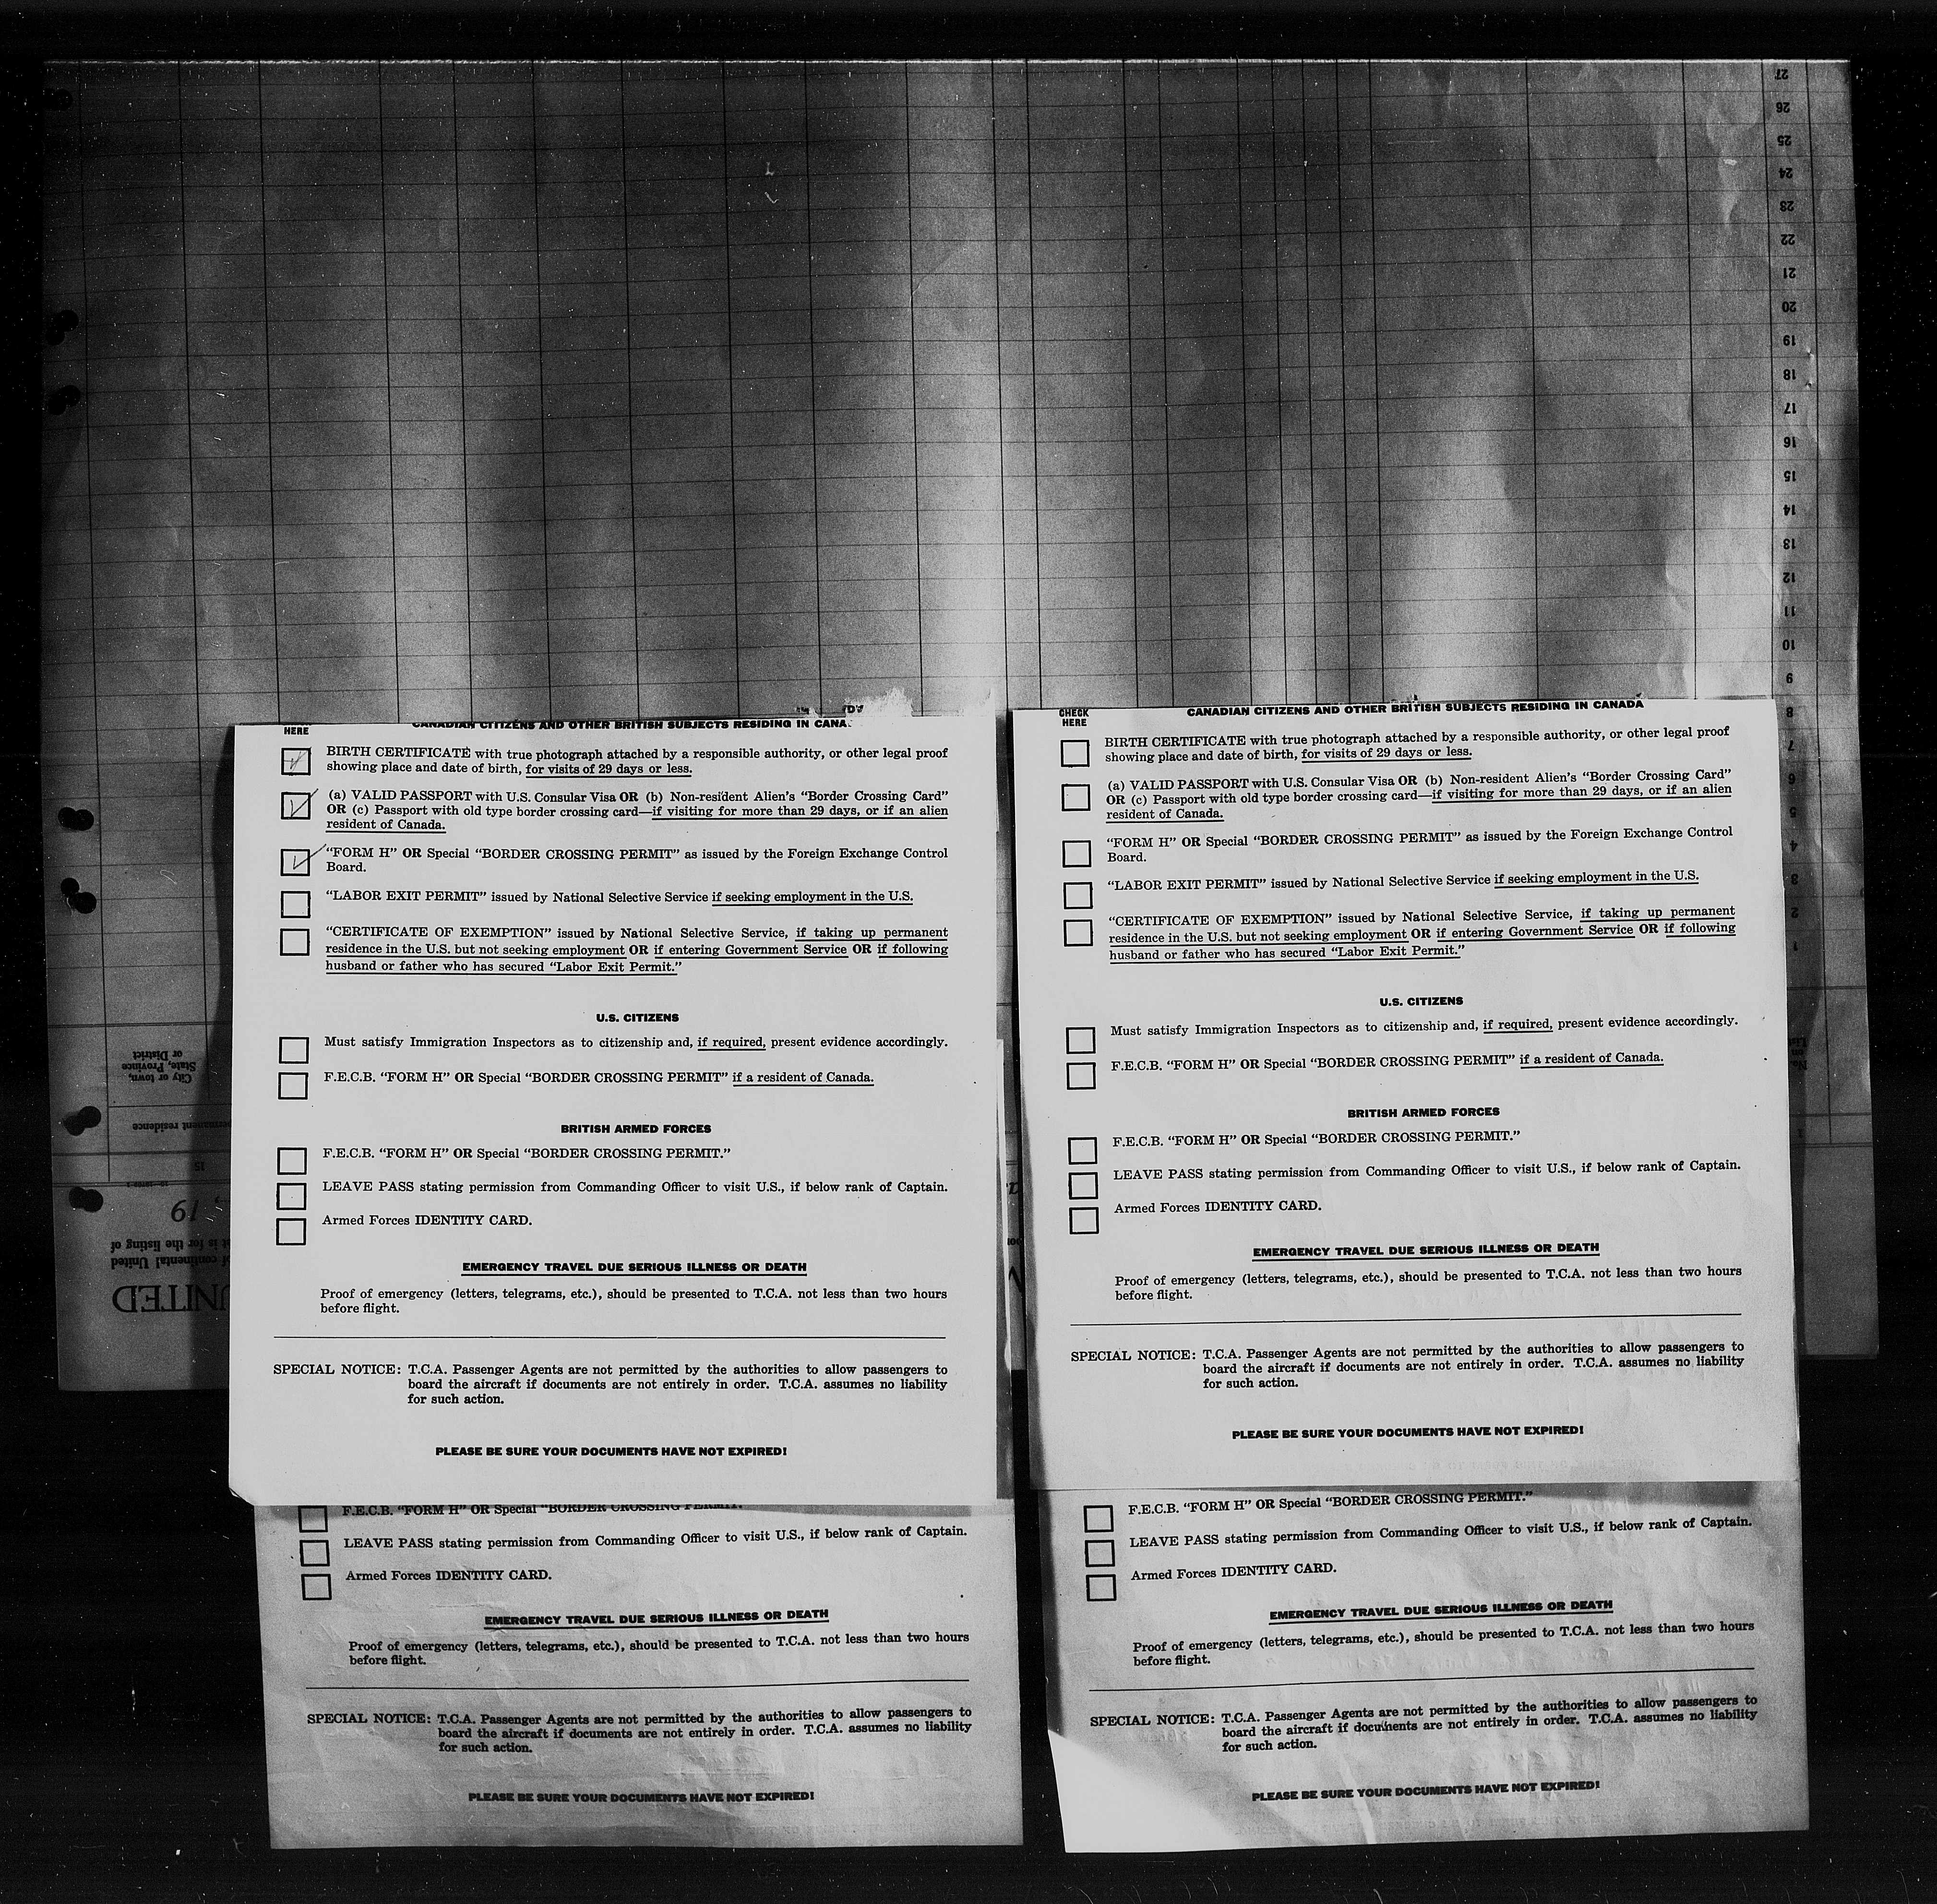 27
26
25
24
23
22
21
20
19
18
17
16
15
14
13
12
11
10
9
8
7
6
5
4
3
2
1
HERE
CANADIAN CITIZENS AND OTHER BRITISH SUBJECTS RESIDING IN CANA
BIRTH CERTIFICATE with true photograph attached by a responsible authority, or other legal proof
showing place and date of birth, for visits of 29 days or less.
(a) VALID PASSPORT with U.S. Consular Visa OR (b) Non-resident Alien's "Border Crossing Card"
OR (c) Passport with old type border crossing card—if visiting for more than 29 days, or if an alien
resident of Canada.
"FORM H" OR Special "BORDER CROSSING PERMIT" as issued by the Foreign Exchange Control
Board.
"LABOR EXIT PERMIT" issued by National Selective Service if seeking employment in the U.S.
"CERTIFICATE OF EXEMPTION" issued by National Selective Service, if taking up permanent
residence in the U.S. but not seeking employment OR if entering Government Service OR if following
husband or father who has secured "Labor Exit Permit."
U.S. CITIZENS
Must satisfy Immigration Inspectors as to citizenship and, if required, present evidence accordingly.
F.E.C.B. "FORM H" OR Special "BORDER CROSSING PERMIT" if a resident of Canada.
BRITISH ARMED FORCES
F.E.C.B. "FORM H" OR Special "BORDER CROSSING PERMIT."
LEAVE PASS stating permission from Commanding Officer to visit U.S., if below rank of Captain.
Armed Forces IDENTITY CARD.
EMERGENCY TRAVEL DUE SERIOUS ILLNESS OR DEATH
Proof of emergency (letters, telegrams, etc.), should be presented to T.C.A. not less than two hours
before flight.
SPECIAL NOTICE: T.C.A. Passenger Agents are not permitted by the authorities to allow passengers to
board the aircraft if documents are not entirely in order. T.C.A. assumes no liability
for such action.
PLEASE BE SURE YOUR DOCUMENTS HAVE NOT EXPIRED!
CHECK
HERE
CANADIAN CITIZENS AND OTHER BRITISH SUBJECTS RESIDING IN CANADA
BIRTH CERTIFICATE with true photograph attached by a responsible authority, or other legal proof
showing place and date of birth, for visits of 29 days or less.
(a) VALID PASSPORT with U.S. Consular Visa OR (b) Non-resident Alien's "Border Crossing Card"
OR (c) Passport with old type border crossing card—if visiting for more than 29 days, or if an alien
resident of Canada.
"FORM H" OR Special "BORDER CROSSING PERMIT" as issued by the Foreign Exchange Control
Board.
"LABOR EXIT PERMIT" issued by National Selective Service if seeking employment in the U.S.
"CERTIFICATE OF EXEMPTION" issued by National Selective Service, if taking up permanent
residence in the U.S. but not seeking employment OR if entering Government Service OR if following
husband or father who has secured "Labor Exit Permit."
U.S. CITIZENS
Must satisfy Immigration Inspectors as to citizenship and, if required, present evidence accordingly.
F.E.C.B. "FORM H" OR Special "BORDER CROSSING PERMIT" if a resident of Canada.
BRITISH ARMED FORCES
F.E.C.B. "FORM H" OR Special "BORDER CROSSING PERMIT."
LEAVE PASS stating permission from Commanding Officer to visit U.S., if below rank of Captain.
Armed Forces IDENTITY CARD.
EMERGENCY TRAVEL DUE SERIOUS ILLNESS OR DEATH
Proof of emergency (letters, telegrams, etc.), should be presented to T.C.A. not less than two hours
before flight.
SPECIAL NOTICE: T.C.A. Passenger Agents are not permitted by the authorities to allow passengers to
board the aircraft if documents are not entirely in order. T.C.A. assumes no liability
for such action.
PLEASE BE SURE YOUR DOCUMENTS HAVE NOT EXPIRED!
F.E.C.B. "FORM H" OR Special "BORDER CROSSING PERMIT."
LEAVE PASS stating permission from Commanding Officer to visit U.S., if below rank of Captain.
Armed Forces IDENTITY CARD.
EMERGENCY TRAVEL DUE SERIOUS ILLNESS OR DEATH
Proof of emergency (letters, telegrams, etc.), should be presented to T.C.A. not less than two hours
before flight.
SPECIAL NOTICE: T.C.A. Passenger Agents are not permitted by the authorities to allow passengers to
board the aircraft if documents are not entirely in order. T.C.A. assumes no liability
for such action.
PLEASE BE SURE YOUR DOCUMENTS HAVE NOT EXPIRED!
F.E.C.B. "FORM H" OR Special "BORDER CROSSING PERMIT."
LEAVE PASS stating permission from Commanding Officer to visit U.S., if below rank of Captain.
Armed Forces IDENTITY CARD.
EMERGENCY TRAVEL DUE SERIOUS ILLNESS OR DEATH
Proof of emergency (letters, telegrams, etc.), should be presented to T.C.A. not less than two hours
before flight.
SPECIAL NOTICE: T.C.A. Passenger Agents are not permitted by the authorities to allow passengers to
board the aircraft if documents are not entirely in order. T.C.A. assumes no liability
for such action.
PLEASE BE SURE YOUR DOCUMENTS HAVE NOT EXPIRED!
NITED
of continental United
is for the listing of
, 19
15
residence
City or town,
State, Province
or District
No.
on
List